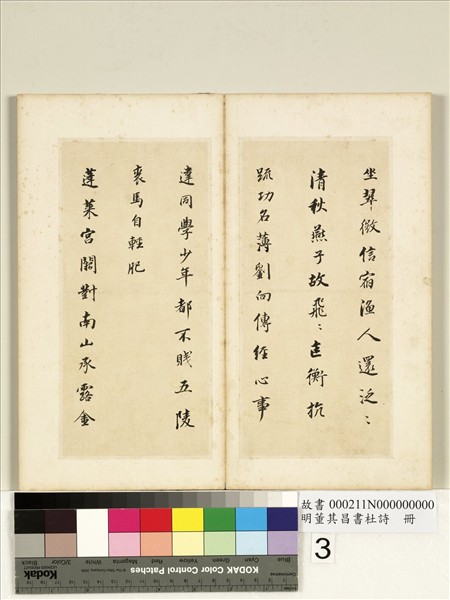 坐翠微信宿漁人還泛〻
清秋燕子故飛〻匡衡抗
疏功名薄劉向傳經心事
違同學少年都不賤五陵
裘馬自輕肥
蓬萊宮闕對南山承露金
故書 000211N000000000
明董其昌書杜詩 冊
3
Blue Cyan Green Yellow Red Magenta White 3/Color Black
KODAK Color Control Patches
Kodak